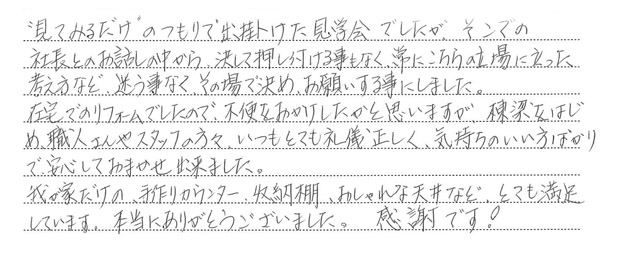 "見てみるだけ"のつもりで出掛けた見学会でしたが、そこでの
社長とのお話しの中から、決して押し付ける事もなく、常にこちらの立場に立った
考え方など、迷う事なく、その場で決め、お願いする事にしました。
在宅でのリフォームでしたので、不便をおかけしたかと思いますが、棟梁をはじ
め、職人さんやスタッフの方々、いつもとても礼儀正しく、気持ちのいい方ばかり
で、安心しておまかせ出来ました。
我が家だけの、手作りカウンター、収納棚、おしゃれな天井など、とても満足
しています。本当にありがとうございました。 感謝です!